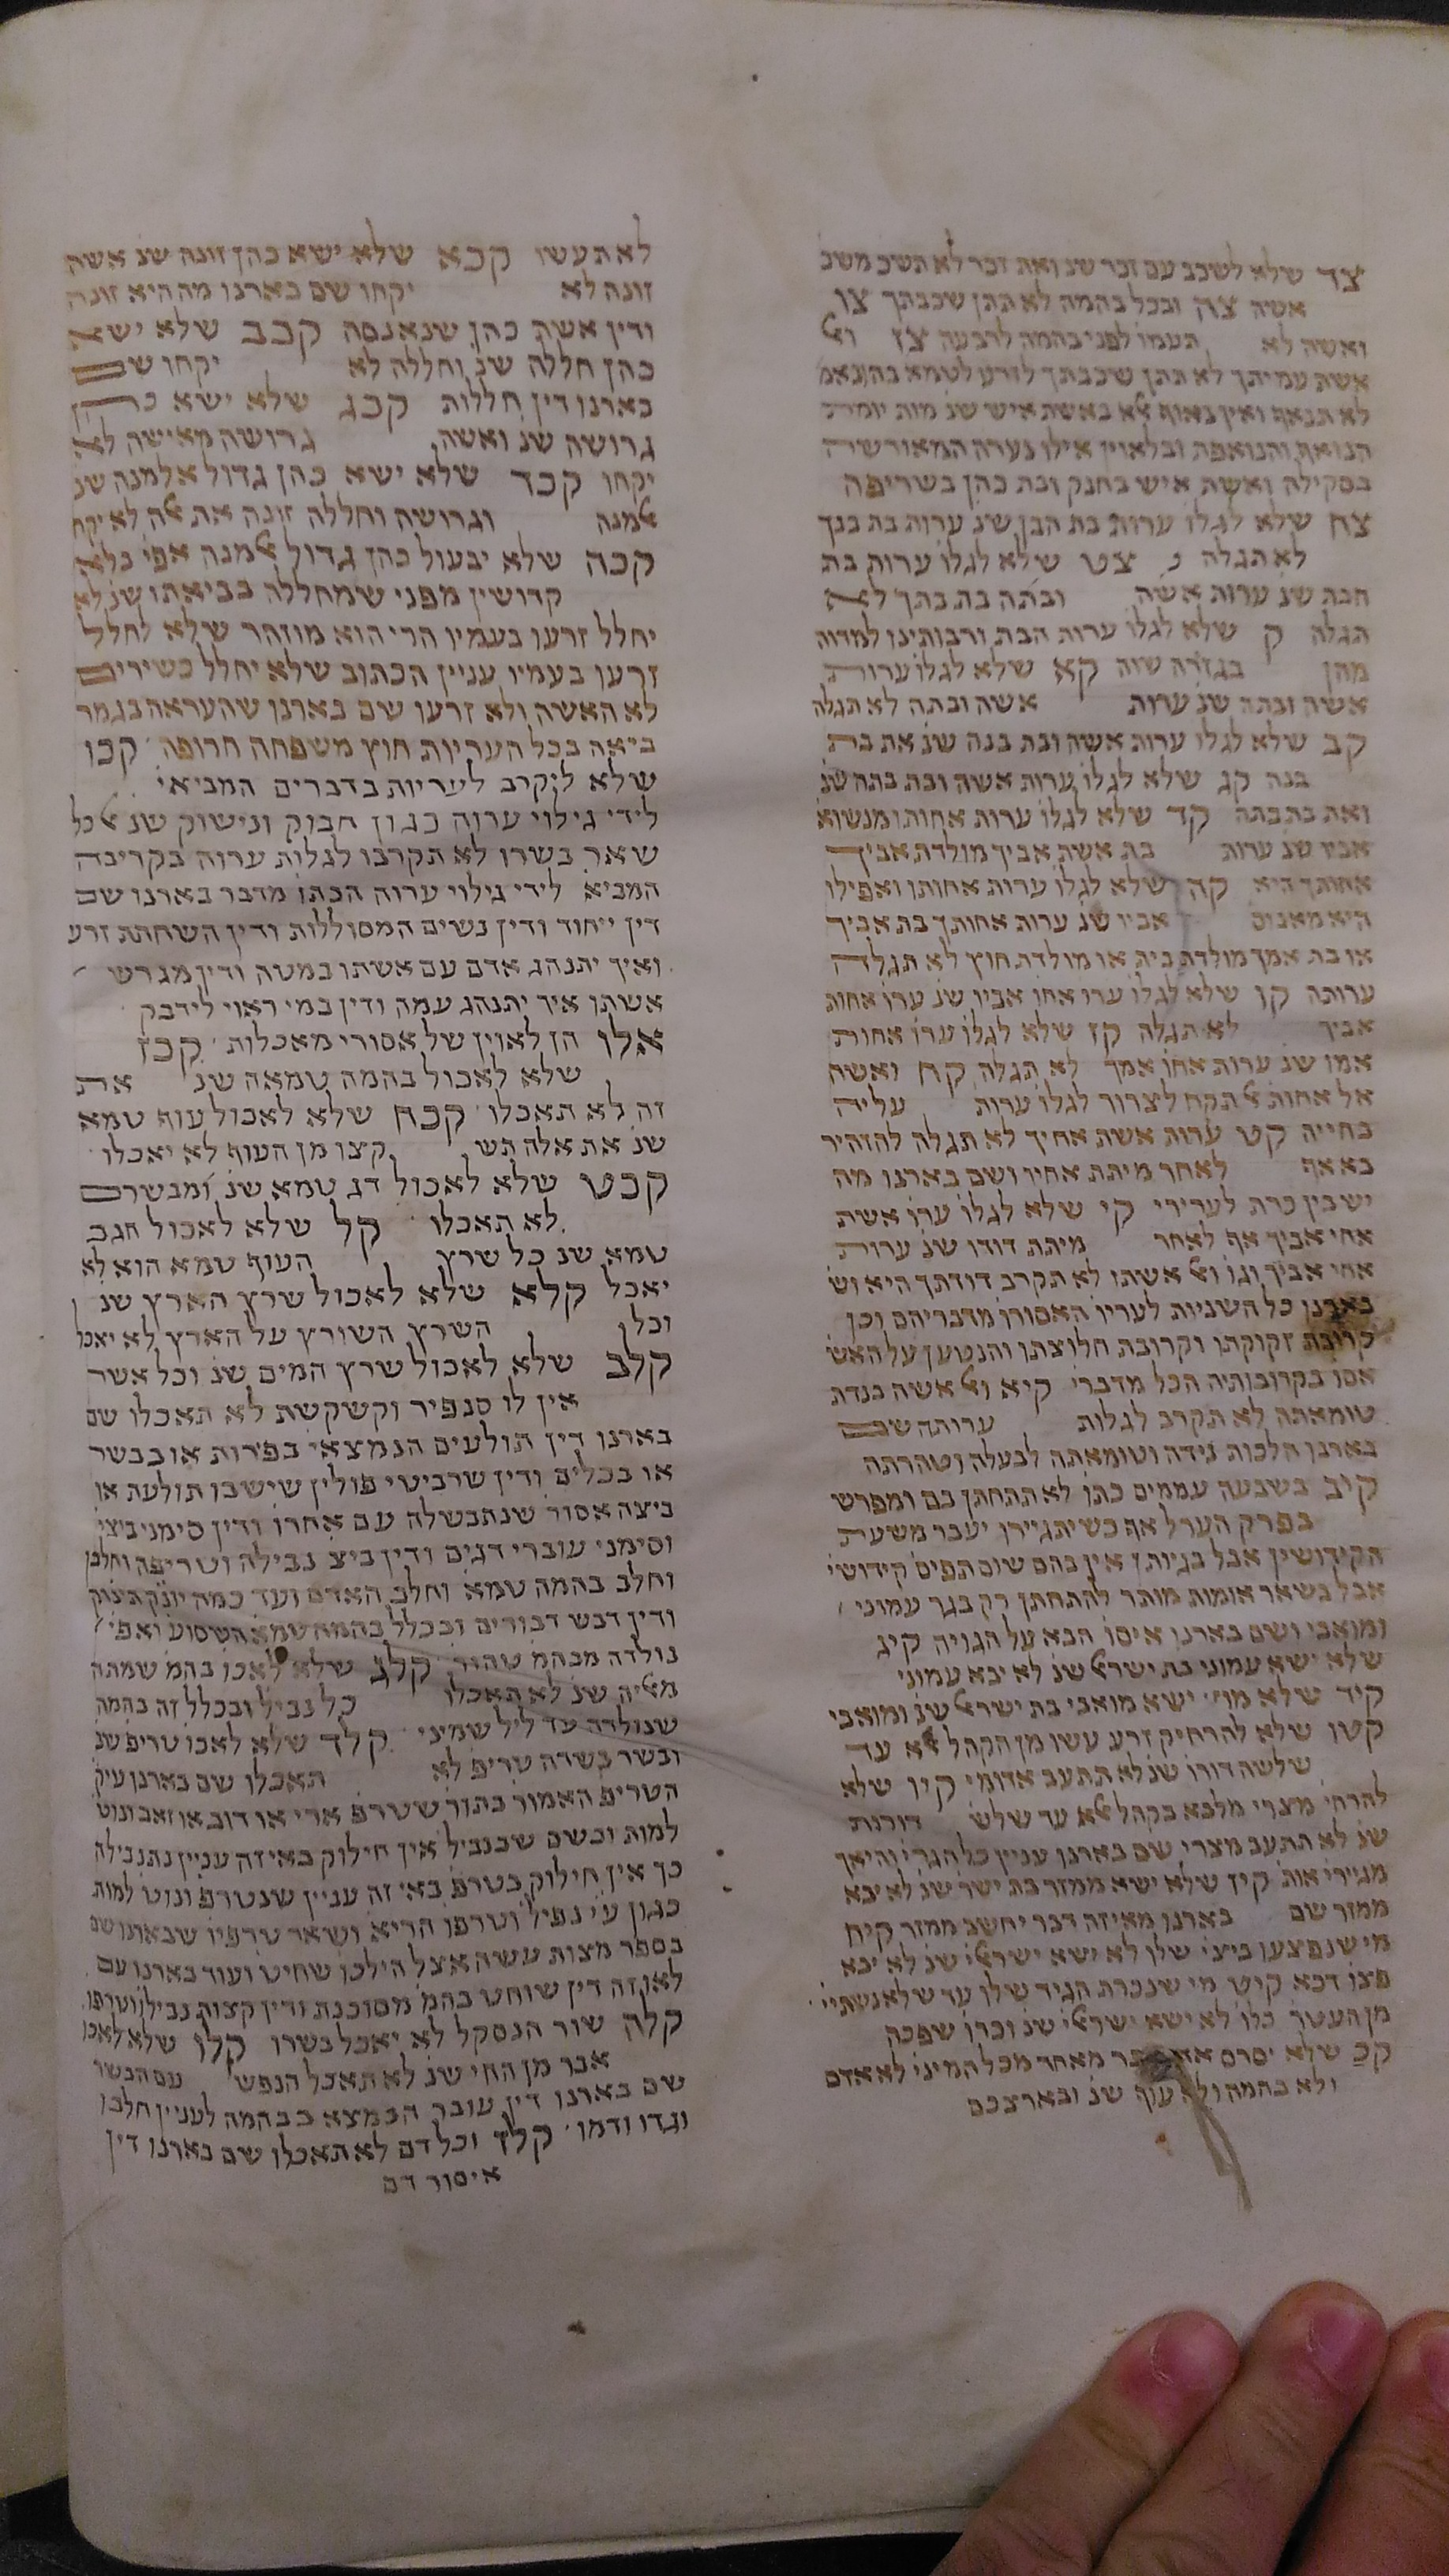 צד שלא לשכב עם זכר שנ ואת זכר לא תשכ משכ
אשה צה ובכל בהמה לא תתן שכבתך צו
ואשה לא תעמו לפני בהמה לרבעה צז וﭏ
אשת עמיתך לא תתן שכבתך לזרע לטמאה בה ונאמ
לא תנאף ואין נאוף ﭏא באשת איש שנ מות יומת
הנואף והנואפת ובלאוין אילו נערה המאורשה
בסקילה ואשת איש בחנק ובת כהן בשריפה
צח שלא לגלו ערות בת הבן שנ ערות בת בנך
לא תגלה צט שלא לגלו ערות בת
הבת שנ ערות אשה ובתה בת בתך לא
תגלה ק שלא לגלו ערות הבת ורבותינו למדוה
מהן בגזרה שוה קא שלא לגלו ערות
אשה ובתה שנ ערות אשה ובתה לא תגלה
קב שלא לגלו ערות אשה ובת בנה שנ את בת
בנה קג שלא לגלו ערות אשה ובת בתה שנ
ואת בת בתה קד שלא לגלו ערות אחותו מנשוא
אביו שנ ערות בת אשת אביך מולדת אביך
אחותך היא קה שלא לגלו ערות אחותו ואפילו
היא מאנוס אביו שנ ערות אחותך בת אביך
או בת אמך מולדת בית או מולדת חוץ לא תגלה
ערותה קו שלא לגלו ערו אחו אביו שנ ערו אחות
אביך לא תגלה קז שלא לגלו ערו אחות
אמו שנ ערות אחו אמך לא תגלה קח ואשה
אל אחות ﭏ תקח לצרור לגלו ערות עליה
בחייה קט ערות אשת אחיך לא תגלה להזהיר
בא אף לאחר מיתת אחיו ושם בארנו מה
יש בין כרת לערירי קי שלא לגלו ערו אשת
אחי אביך אף לאחר מיתת דודו שנ ערות
אחי אביך וגו וﭏ אשתו לא תקרב דודתך היא וש
בארנו כל השניות לעריו האסורו מדבריהם וכן
קרובת זקוקתו וקרובת חלוצתו והנטען על האש
אסו בקרובותיה הכל מדברי קיא וﭏ אשה בנדת
טומאתה לא תקרב לגלות ערותה שם
בארנו הלכות נידה וטומאתה לבעלה וטהרתה
קיב בשבעה עממים כתו לא תתחתן בם ומפרש
בפרק הערל אף כשיתגיירו יעבר משעת
הקידושין אבל בגיותן אין בהם שום תפיס קידושי
אבל בשאר אומות מותר להתחתן רק בגר עמוני
ומואבי ושם בארנו איסו הבא על הגויה קיג
שלא ישא עמוני בת ישרﭏ שנ לא יבא עמוני
קיד שלא ישא מואבי בת ישרﭏ שנ ומואבי
קטו שלא להרחיק זרע עשו מן הקהל ﭏא עד
שלשה דורו שנ לא תתעב אדומי קיו שלא
להרחי מצרי מלבא בקהל ﭏא עד שלש דורות
שנ לא תתעב מצרי שם בארנו עניין כל הגרי והיאך
מגיירי אות קיז שלא ישא ממזר בת ישר שנ לא יבא
ממזר שם בארנו מאיזה דבר יחשב ממזר קיח
מי שנפצעו ביצי שלו לא ישא ישרﭏי שנ לא יבא
פצו דכא קיט מי שנכרת הגיד שלו עד שלא נשתיי
מן העטר כלו לא ישא ישרﭏי שנ וכרו שפכה
קכ שלא יסרס אבר מאחד מכל המיני לא אדם
ולא בהמה ולא עוף שנ ובארצכם
לא תעשו קכא שלא ישא כהן זונה שנ אשה
זונה לא יקחו שם בארנו מה היא זונה
ודין אשת כהן שנאנסה קכב שלא ישא
כהן חללה שנ וחללה לא יקחו שם
בארנו דין חללות קכג שלא ישא כהן
גרושה שנ ואשה גרושה מאישה לא
יקחו קכד שלא ישא כהן גדול אלמנה שנ
ﭏמנה וגרושה וחללה זונה את ﭏה לא יקח
קכה שלא יבעול כהן גדול ﭏמנה אפי בלא
קדושין מפני שמחללה בביאתו שנ לא
יחלל זרעו בעמיו הרי הוא מוזהר שלא לחלל
זרעו בעמיו עניין הכתוב שלא יחלל כשירים
לא האשה ולא זרעו שם בארנו שהעראה בגמר
ביאה בכל העריות חוץ משפחה חרופה קכו
שלא ליקרב לעריות בדברים המביאי
לידי גילוי ערוה כגון חבוק ונישוק שנ ﭏ כל
שאר בשרו לא תקרבו לגלות ערוה בקריבה
המביא לידי גילוי ערוה הכתו מדבר בארנו שם
דין ייחוד ודין נשים המסוללות ודין השחתת זרע
ואיך יתנהג אדם עם אשתו במטה ודין מגרש
אשתו איך יתנהג עמה ודין במי ראוי לידבק
אלו הן לאוין של אסורי מאכלות קכז
שלא לאכול בהמה טמאה שנ את
זה לא תאכלו קכח שלא לאכול עוף טמא
שנ את אלה תש קצו מן העוף לא יאכלו
קכט שלא לאכול דג טמא שנ ומבשרם
לא תאכלו קל שלא לאכול חגב
טמא שנ כל שרץ העוף טמא הוא לא
יאכל קלא שלא לאכול שרץ הארץ שנ
וכל השרץ השורץ על הארץ לא יאכל
קלב שלא לאכול שרץ המים שנ וכל אשר
אין לו סנפיר וקשקשת לא תאכלו שם
בארנו דין תולעים הנמצאי בפירות או בבשר
או בכלים ודין שרביטי פולין שישבו תולעת או
ביצה אסור שנתבשלה עם אחרו ודין סימני ביצי
וסימני עוברי דגים ודין ביצ נבילה וטריפה וחלבן
וחלב בהמה טמא וחלב האדם ועד כמה יונק תינוק
ודין דבש דבורים ובכלל בהמה טמא השסוע ואפי
נולדה מבהמ טהור קלג שלא לאכו בהמ שמתה
מﭏיה שנ לא תאכלו כל נביל ובכלל זה בהמה
שנולדה עד ליל שמיני קלד שלא לאכו טריפ שנ
ובשר בשדה טריפ לא תאכלו שם בארנו עיק
הטריפ האמור בתור שטרפ ארי או דוב או זאב ונוט
למות וכשם שבנביל אין חילוק באיזה עניין נתנבילה
כך אין חילוק בטרפ באי זה עניין שנטרפ ונוט למות
כגון עי נפיל וטרפו הריא ושאר טרפיו שבארנו שם
בספר מצות עשה אצל הילכו שחיט ועוד בארנו עם
לאו זה דין שוחט בהמ מסוכנת ודין קצות נבילו וטרפו
קלה שור הנסקל לא יאכל בשרו קלו שלא לאכו
אבר מן החי שנ לא תאכל הנפש עם הבשר
שם בארנו דין עובר הנמצא בבהמה לעניין חלבו
וגדו ודמו קלז וכל דם לא תאכלו שם בארנו דין
איסור דם